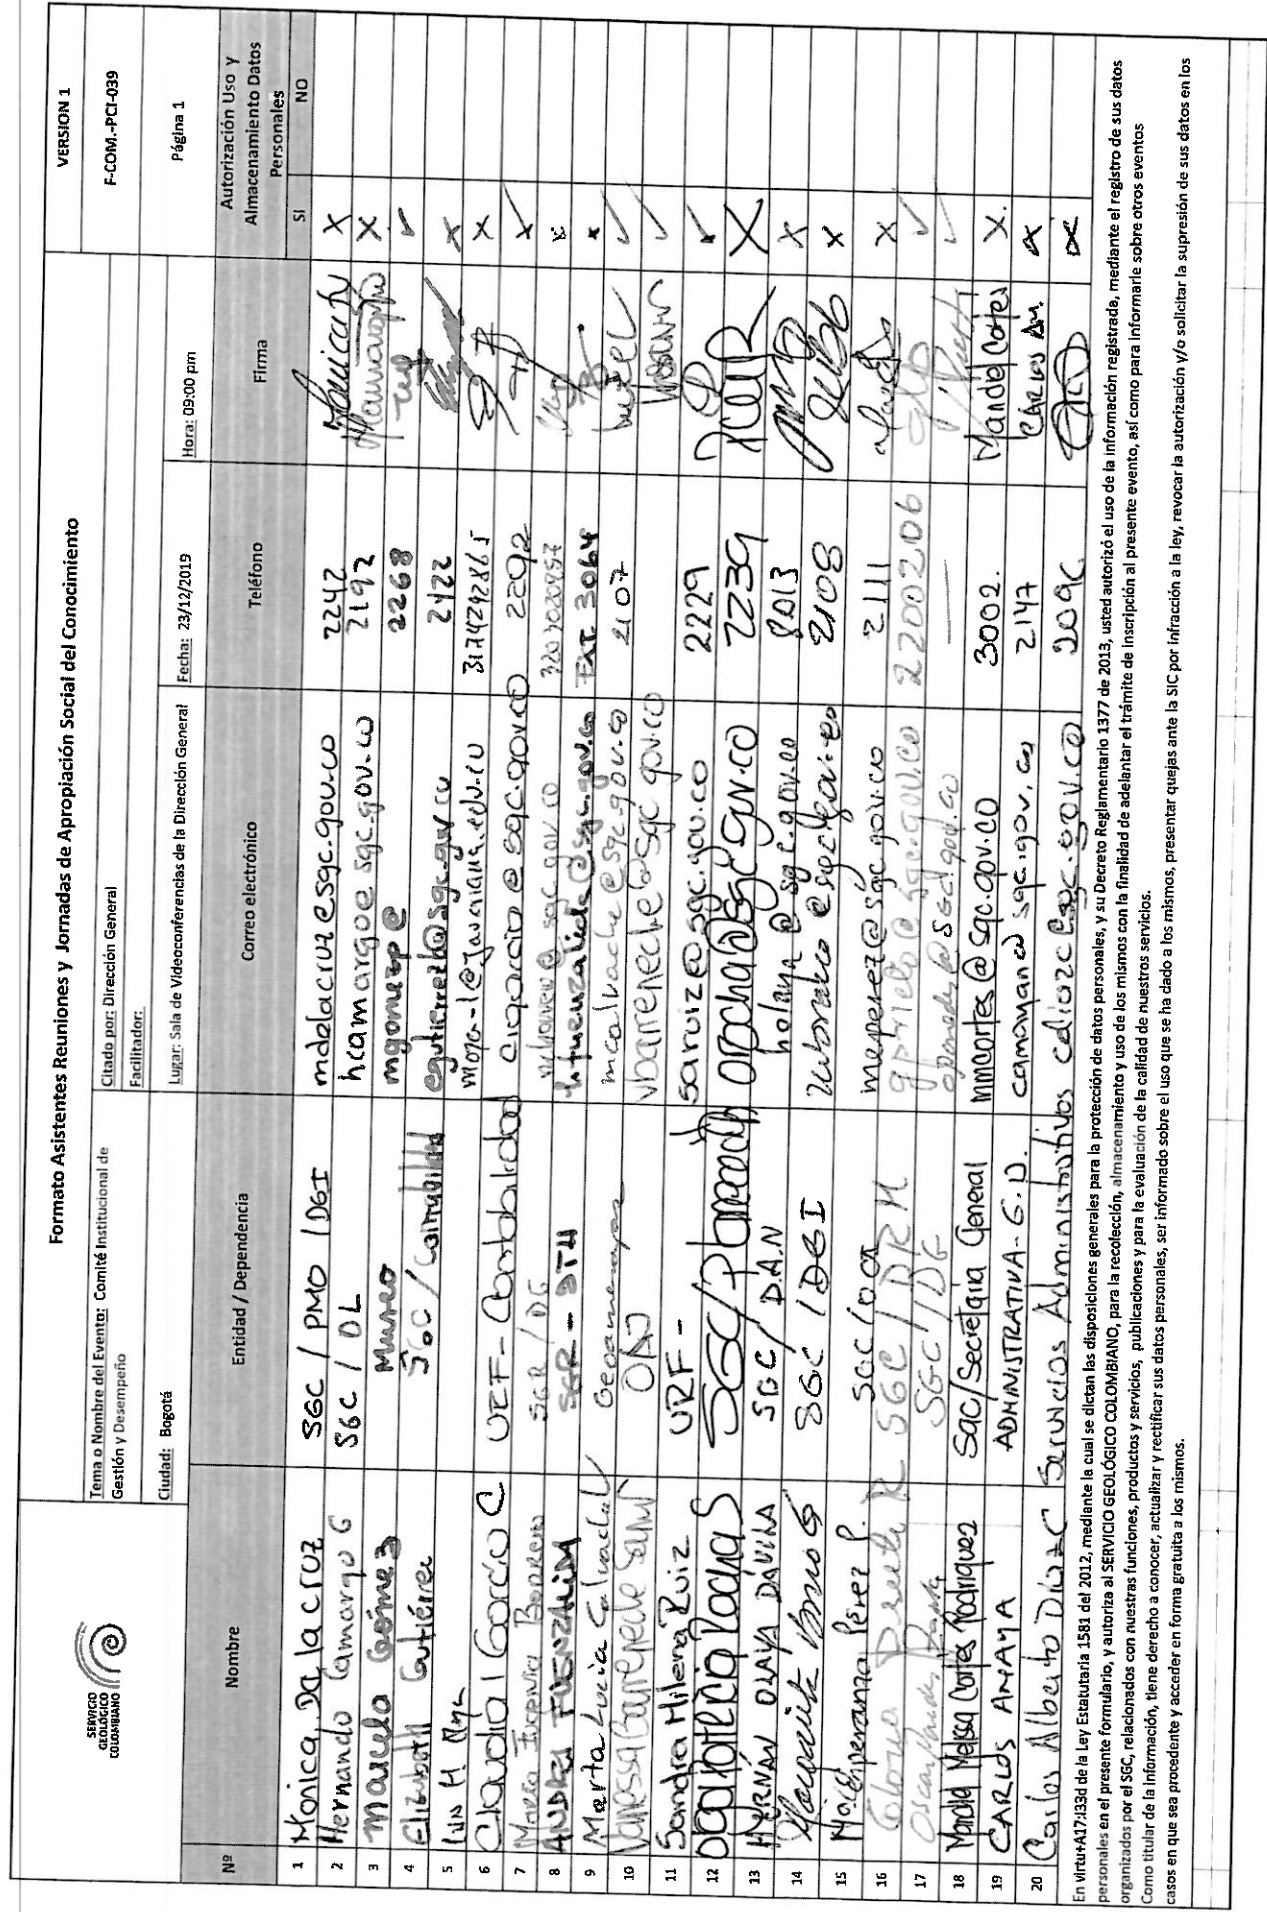 SERVICIO
GEOLÓGICO
COLOMBIANO
Formato Asistentes Reuniones y Jornadas de Apropiación Social del Conocimiento
VERSION 1
Tema o Nombre del Evento: Comité Institucional de
Gestión y Desempeño
Citado por: Dirección General
Facilitador:
F-COM.-PCI-039
Ciudad: Bogotá
Lugar: Sala de Videoconferencias de la Dirección General
Fecha: 23/12/2019
Hora: 09:00 pm
Página 1
Nº
Nombre
Entidad / Dependencia
Correo electrónico
Teléfono
Firma
Autorización Uso y
Almacenamiento Datos
Personales
SI NO
1 Monica De la Cruz SGC / PMO / DGI mdelacruz@sgc.gov.co 2242 X
2 Hernando Camargo G SGC / OL hcamargo@sgc.gov.co 2192 X
3 Marcela Gómez Museo mgomezp@ 2268 ✓
4 Elizabeth Gutiérrez SGC / Contabilidad egutierrez@sgc.gov.co 2422 X
5 Luis H. 3174292865 X
6 Claudia I García C UEF - Contabilidad cigarcia@sgc.gov.co 2292 ✓
7 María Eugenia Borrero SGR / DG
8 ANDREA FUENZALIDA SGR - DTH EXT. 3064 x
9 Marta Lucía Calvache Geoamenazas mcalvache@sgc.gov.co 2107 ✓
10 Vanessa Barreneche OAJ vbarreneche@sgc.gov.co ✓
11 Sandra Milena Ruiz URF - saruiz@sgc.gov.co 2229 ✓
12 Olga Patricia Rocha S SGC/Planeación oprocha@sgc.gov.co 2239 X
13 HERNÁN OLAYA DÁVILA SGC / D.A.N holaya@sgc.gov.co 8013 X
14 SGC / DGI @sgc.gov.co 2108 X
15 Ma. Esperanza Pérez P. SGC / mesperez@sgc.gov.co 2111 X
16 Gloria SGC / DRH @sgc.gov.co 22002206 ✓
17 Oscar SGC / DG @sgc.gov.co — ✓
18 Mandel Melissa Cortes Rodriguez SGC/Secretaria General mmcortes@sgc.gov.co 3002. Mandel Cortes X.
19 CARLOS ANAYA ADMINISTRATIVA - G.D. 2147 CARLOS AN. X
20 Carlos Alberto Díaz C Servicios Administrativos cadiazc@sgc.gov.co 2096 X
En virtu+A17:I33d de la Ley Estatutaria 1581 del 2012, mediante la cual se dictan las disposiciones generales para la protección de datos personales, y su Decreto Reglamentario 1377 de 2013, usted autorizó el uso de la información registrada, mediante el registro de sus datos
personales en el presente formulario, y autoriza al SERVICIO GEOLÓGICO COLOMBIANO, para la recolección, almacenamiento y uso de los mismos con la finalidad de adelantar el trámite de inscripción al presente evento, así como para informarle sobre otros eventos
organizados por el SGC, relacionados con nuestras funciones, productos y servicios, publicaciones y para la evaluación de la calidad de nuestros servicios.
Como titular de la información, tiene derecho a conocer, actualizar y rectificar sus datos personales, ser informado sobre el uso que se ha dado a los mismos, presentar quejas ante la SIC por infracción a la ley, revocar la autorización y/o solicitar la supresión de sus datos en los
casos en que sea procedente y acceder en forma gratuita a los mismos.